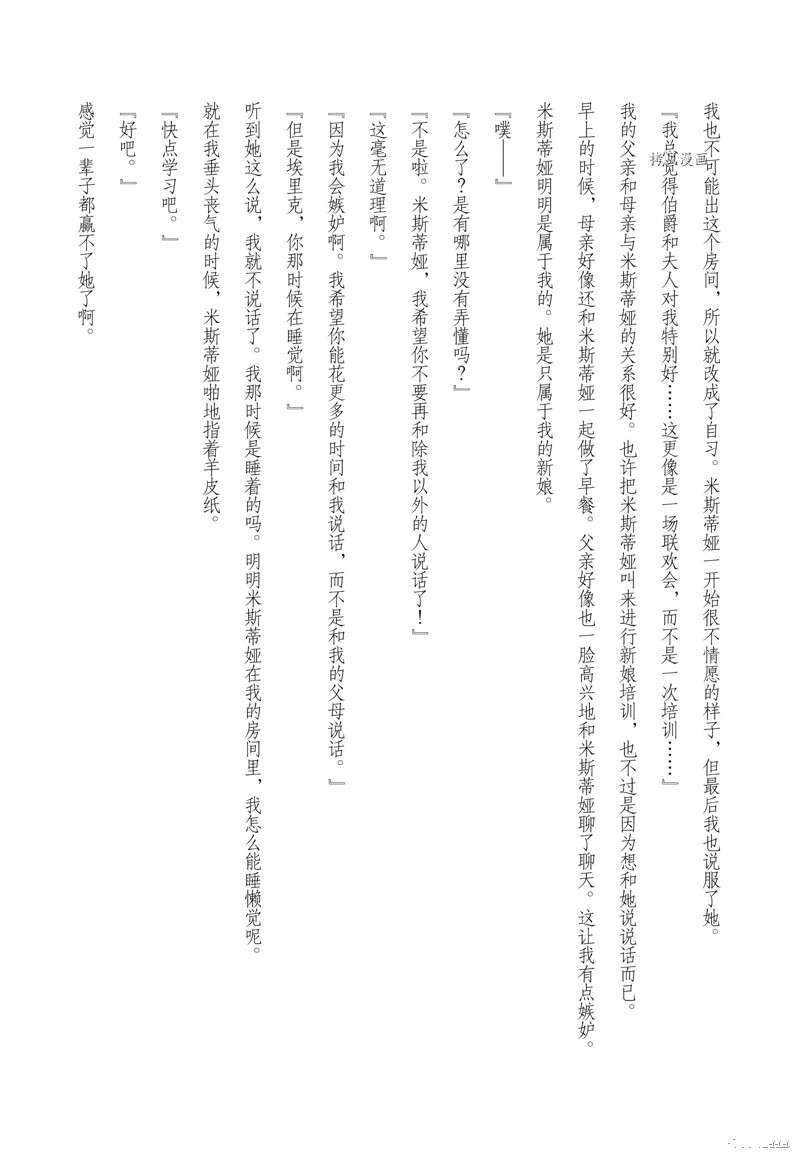 我也不可能出这个房间，所以就改成了自习。米斯蒂娅一开始很不情愿的样子，但最后我也说服了她。
『我总觉得伯爵和夫人对我特别好……这更像是一场联欢会，而不是一次培训……』
我的父亲和母亲与米斯蒂娅的关系很好。也许把米斯蒂娅叫来进行新娘培训，也不过是因为想和她说说话而已。
早上的时候，母亲好像还和米斯蒂娅一起做了早餐。父亲好像也一脸高兴地和米斯蒂娅聊了聊天。这让我有点嫉妒。
米斯蒂娅明明是属于我的。她是只属于我的新娘。
『噗——』
『怎么了？是有哪里没有弄懂吗？』
『不是啦。米斯蒂娅，我希望你不要再和除我以外的人说话了！』
『这毫无道理啊。』
『因为我会嫉妒啊。我希望你能花更多的时间和我说话，而不是和我的父母说话。』
『但是埃里克，你那时候在睡觉啊。』
听到她这么说，我就不说话了。我那时候是睡着的吗。明明米斯蒂娅在我的房间里，我怎么能睡懒觉呢。
就在我垂头丧气的时候，米斯蒂娅啪地指着羊皮纸。
『快点学习吧。』
『好吧。』
感觉一辈子都赢不了她了啊。
拷贝漫画